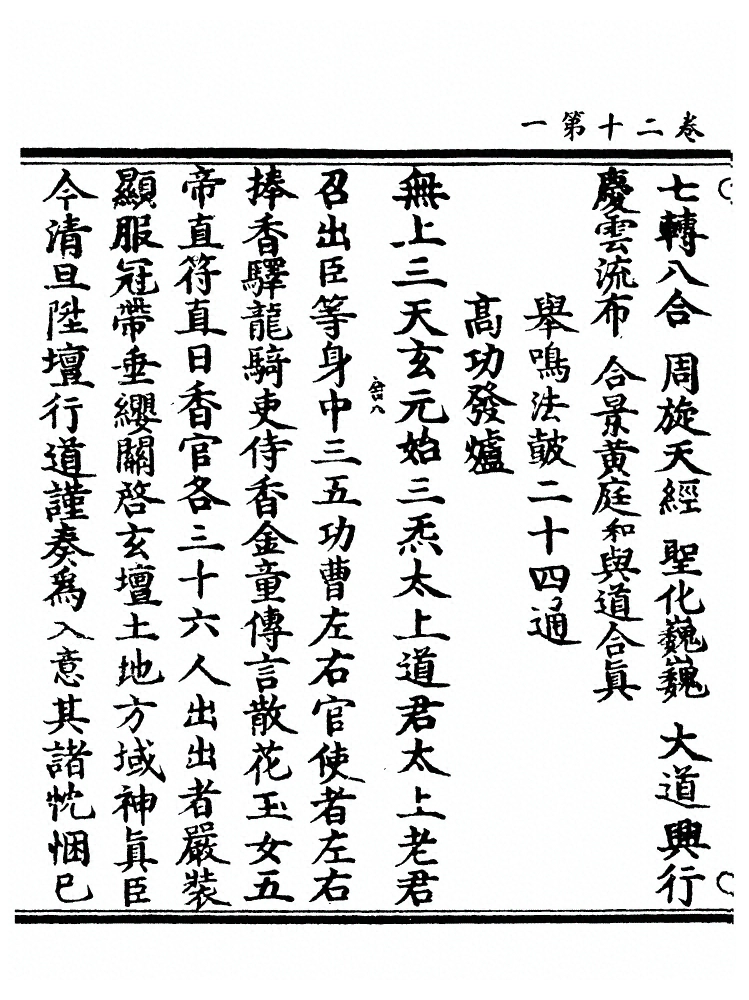 卷二十第一
七轉八合　周旋天經　聖化巍巍　大道興行
慶雲流布　合景黃庭和　與道合眞
舉鳴法鼓二十四通
高功發爐
無上三天玄元始三炁太上道君太上老君
召出臣等身中三五功曹左右官使者左右
捧香驛龍騎吏侍香金童傳言散花玉女五
帝直符直日香官各三十六人出出者嚴裝
顯服冠帶垂纓關啓玄壇土地方域神眞臣
今清旦陞壇行道謹奏爲入意其諸忱悃已